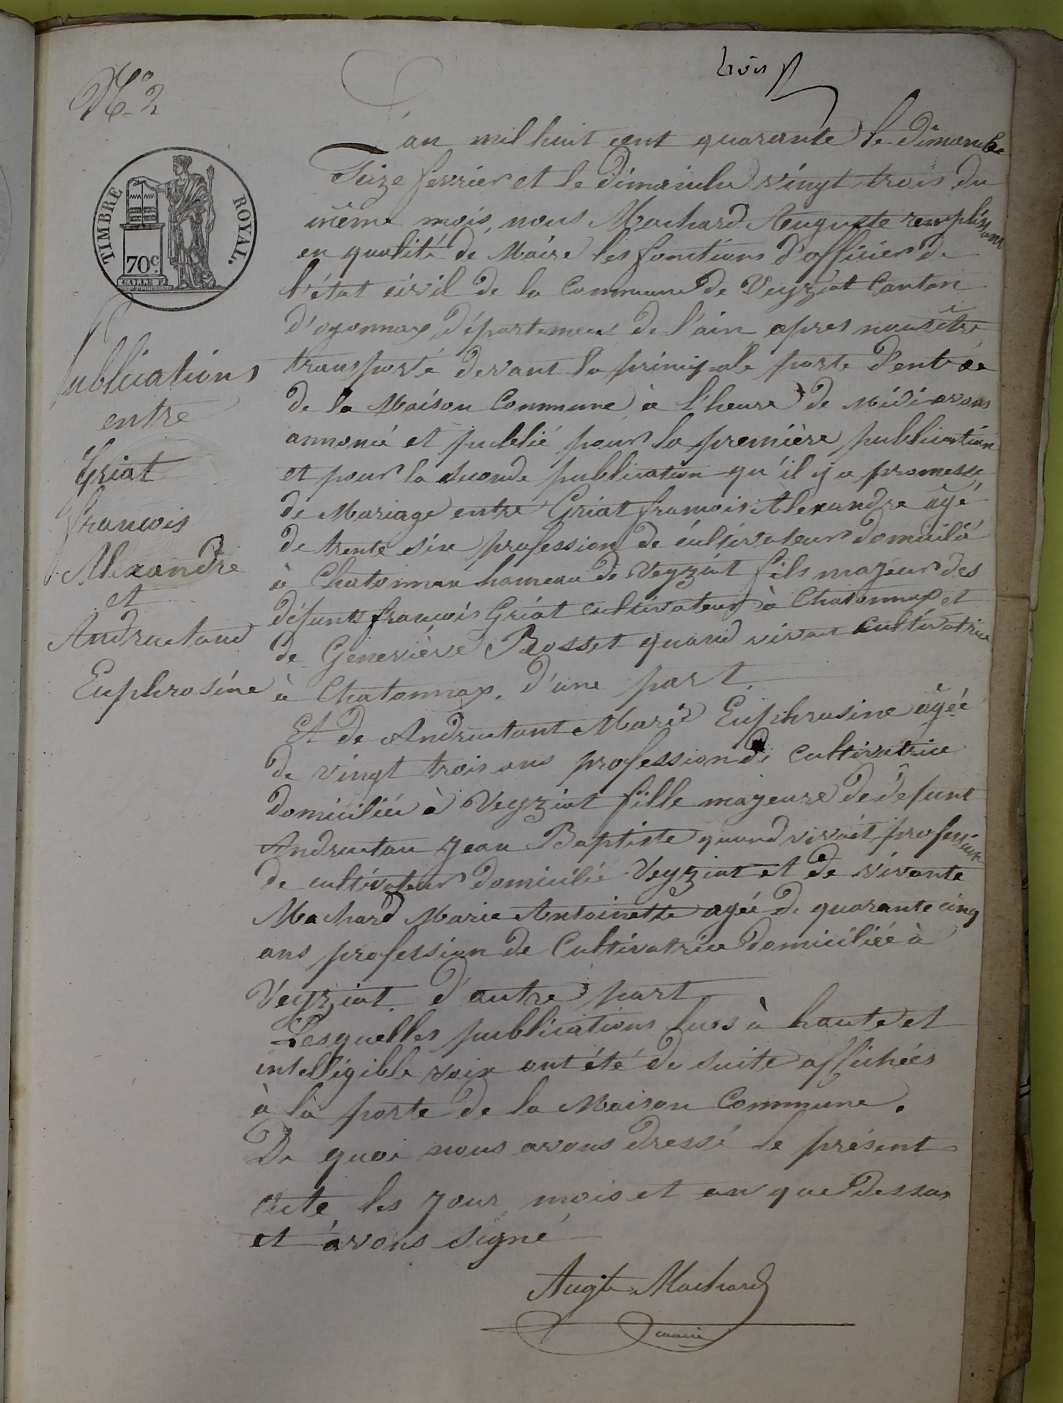 trois
N° 2
TIMBRE ROYAL.
70c
Publications
entre
Griat
françois
Alexandre
et
Andruetand
Euphrosine
L'an mil huit cent quarante le dimanche
Seize fevrier et le dimanche vingt trois du
même mois, nous Machard Auguste remplissant
en qualité de Maire les fonctions d'officier de
l'état civil de la Commune de Veyziat Canton
d'oyonnax, département de l'ain apres nous être
transporté devant la principale porte d'entrée
de la Maison Commune, à l'heure de Midi avons
annoncé et publié pour la première publication
et pour la seconde publication qu'il y a promesse
de Mariage entre Griat françois Alexandre âgé
de trente six profession de cultivateur domicilié
à Chatonnax hameau de Veyziat fils majeur des
défunts françois Griat cultivateur à Chatonnax et
de Geneviève Bosset quand vivait cultivatrice
à Chatonnax, d'une part
Et de Andruetant Marie Euphrosine âgée
de vingt trois ans profession de cultivatrice
domiciliée à Veyziat fille majeure de défunt
Andruetan Jean Baptiste quand vivait profession
de cultivateur domicilié Veyziat et de vivante
Machard Marie Antoinette agée de quarante cinq
ans profession de Cultivatrice domiciliée à
Veyziat d'autre part
Lesquelles publications lues à haute et
intelligible voix ont été de suite affichées
à la porte de la Maison Commune.
De quoi nous avons dressé le présent
acte les jour, mois et an que dessus
et avons signé
Augte Machard
maire